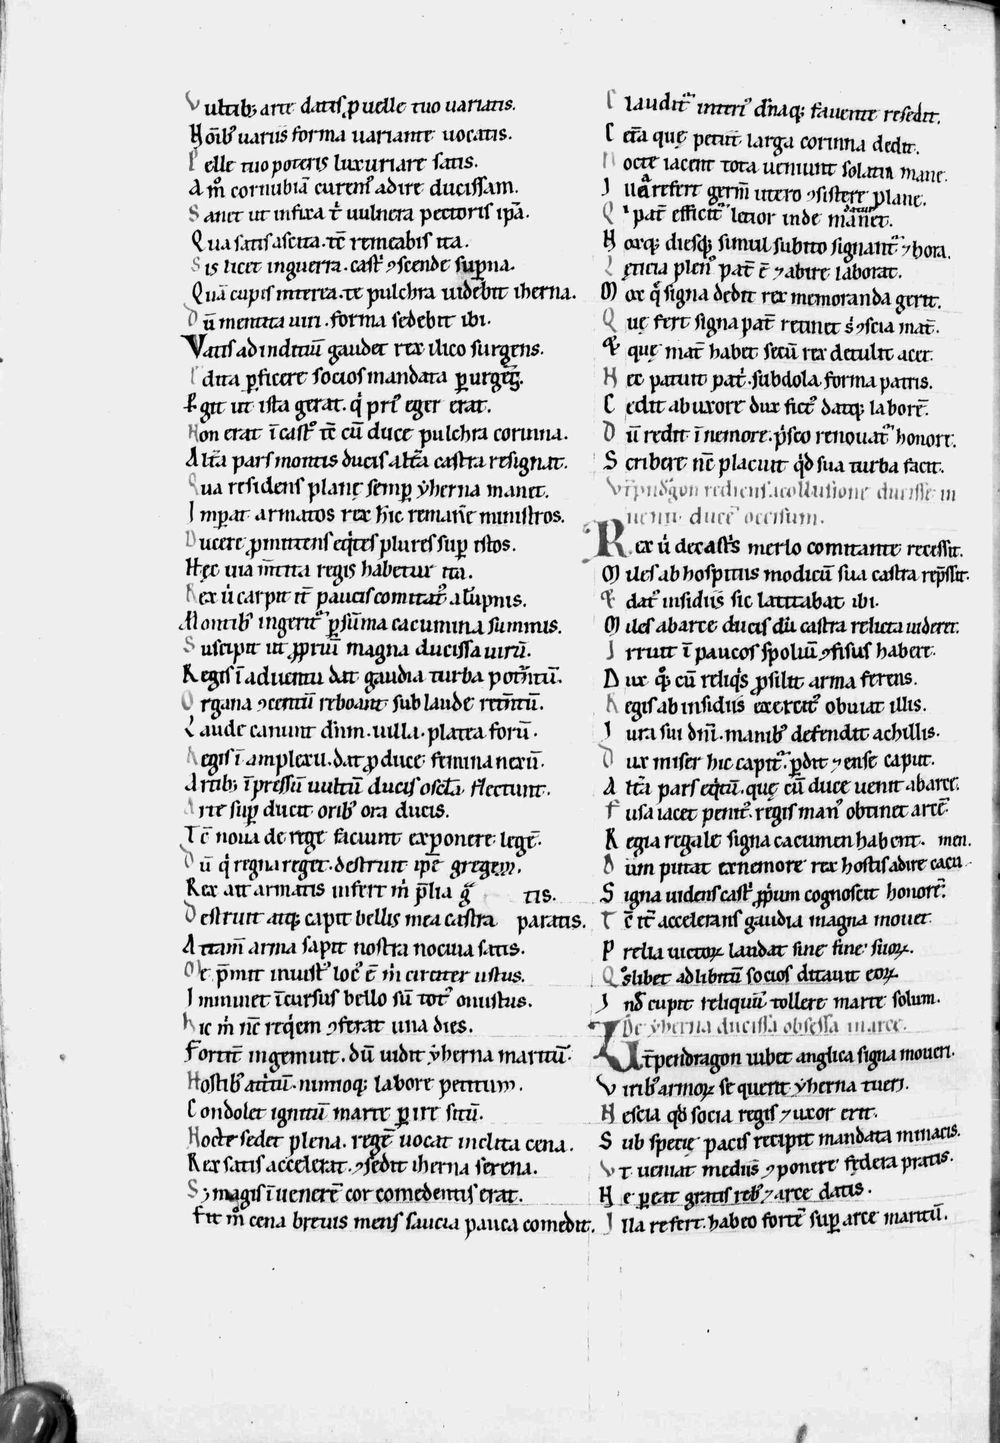 Vultib; arte datis ꝓ uelle tuo uariatis.
Noīb' uariis forma uariante uocatis.
Pelle tuo poteris luxuriare satis.
Am̊ cornubiā curens adire ducissam.
Sanet ut infixa t' uulnera pectoris ip̄a.
Qua satis ascita. tē remeabis ita.
Sis licet in guerra. cast' ꝯscende suꝑna.
Quā cupis interea. te pulchra uidebit iherna.
Dū mentita uiri. forma sedebit ibi.
Vatis ad inditiū gaudet rex ilico surgens.
Edita ꝑficere socios mandata ꝑurgens.
Egit ut ista gerat. q' pri' eger erat.
Non erat ī cast' tē cū duce pulchra corinna.
Altā pars montis ducis altā castra resignat.
Qua residens planę semꝑ ẏherna manet.
Imꝑat armatos rex hic remanē ministros.
Ducere ꝓmittens eq'tes plures suꝑ istos.
Hęc uia m̄tita regis habetur ita.
Rex ů carpit it̄ paucis comitat' alūpnis.
Montib' ingerit' ꝑ sūma cacumina summis.
Suscipit ut ꝓpriū magna ducissa uirū.
Regis ī aduentu dat gaudia turba potentū.
Organa ꝯcentū reboant sub laude retentū.
Laude canunt dn̄m. uilla. platea forū.
Regis ī amplexu. dat ꝓ duce femina nexū.
Artib; īpressū uultū ducis oscl̄a flectunt.
Arte suꝑ ducit orib' ora ducis.
Tē noua de rege faciunt exponere legē.
Dū q' regna reget. destruit ip̄e gregem.
Rex ait armatis infert m̊ p̄lia g̃tis.
Destruit atq; capit bellis mea castra paratis.
Attam̄ arma sapit nostra nociua satis.
Me p̄mit inuist' loc' ē m̊ circiter ustus.
Iminet īcursus bello sū tot' onustus.
Hic m̊ nē req̄em ꝯferat una dies.
Fortit̄ ingemuit. dū uidit ẏherna maritū.
Hostib' attitū. nimioq; labore petitum.
Condolet ignitū marte ꝑire sitū.
Nocte sedet plena. regē uocat inclita cena.
Rex satis accelerat. ꝯsedit iherna serena.
Sȝ magis ī uenerē cor comedentis erat.
Fit m̊ cena breuis mens saucia pauca comedit.
Claudit' interi' dn̄aq; fauente resedit.
Cetā quę petiit larga corinna dedit.
Nocte iacent tota ueniunt solatia mane.
Illa refert germ̄ utero ꝯsistere plane.
Qi pat' efficit' letior inde datur manet.
Horaq; diesq; simul subito signant' ⁊ hora.
Lęticia plen' pat' ē ⁊ abire laborat.
Mox q̊ signa dedit rex memoranda gerit.
Quę fert signa pat' retinet s; ꝯscia mat'.
Et quę mat' habet secū rex detulit acer.
Hec patuit pat'. subdola forma patris.
Cedit ab uxore dux fict' datq; laborē.
Dū redit ī nemore. p'sco renouat' honore.
Scribere nē placuit q̊d sua turba facit.
Vt'pndg̃on rediens. a collusione ducisse in
uenit ducē occisum.
Rex ů de castris merlo comitante recessit.
Miles ab hospitiis modicū sua castra rep̄ssit.
Et dat' insidiis sic latitabat ibi.
Miles ab arce ducis dū castra relicta uideret.
Irruit ī paucos spoliū ꝯfisus habere.
Dux q̊ cū reliq's ꝓsilit arma ferens.
Regis ab insidiis exercit' obuiat illis.
Iura sui dn̄i. manib' defendit achillis.
Dux miser hic capit'. ꝑdit ⁊ ense caput.
Altā pars eq̄tū. quę cū duce uenit ab arce.
Fusa iacet penit'. regis man' obtinet arcē.
Regia regale signa cacumen habent.
Dum putat ex nemore rex hostis adire cacumen.
Signa uidens cast' ꝓprium cognoscit honorē.
Tē it' accelerans gaudia magna mouet.
Prelia uictoꝝ laudat sine fine suoꝝ.
Q'slibet ad libitū socios ditauit eoꝝ.
Ind' cupit reliquiū tollere marte solum.
De ẏherna ducissa obsessa in arce.
Ut'pendragon iubet anglica signa moueri.
Virib' armoꝝ se querit ẏherna tueri.
Nescia q̊d socia regis ⁊ uxor erit.
Sub specie pacis recipit mandata minacis.
Vt ueniat mediis ꝯponere fędera pratis.
Ne ꝑeat gratis reb' ⁊ arce datis.
Illa refert. habeo fortē suꝑ arce maritū.